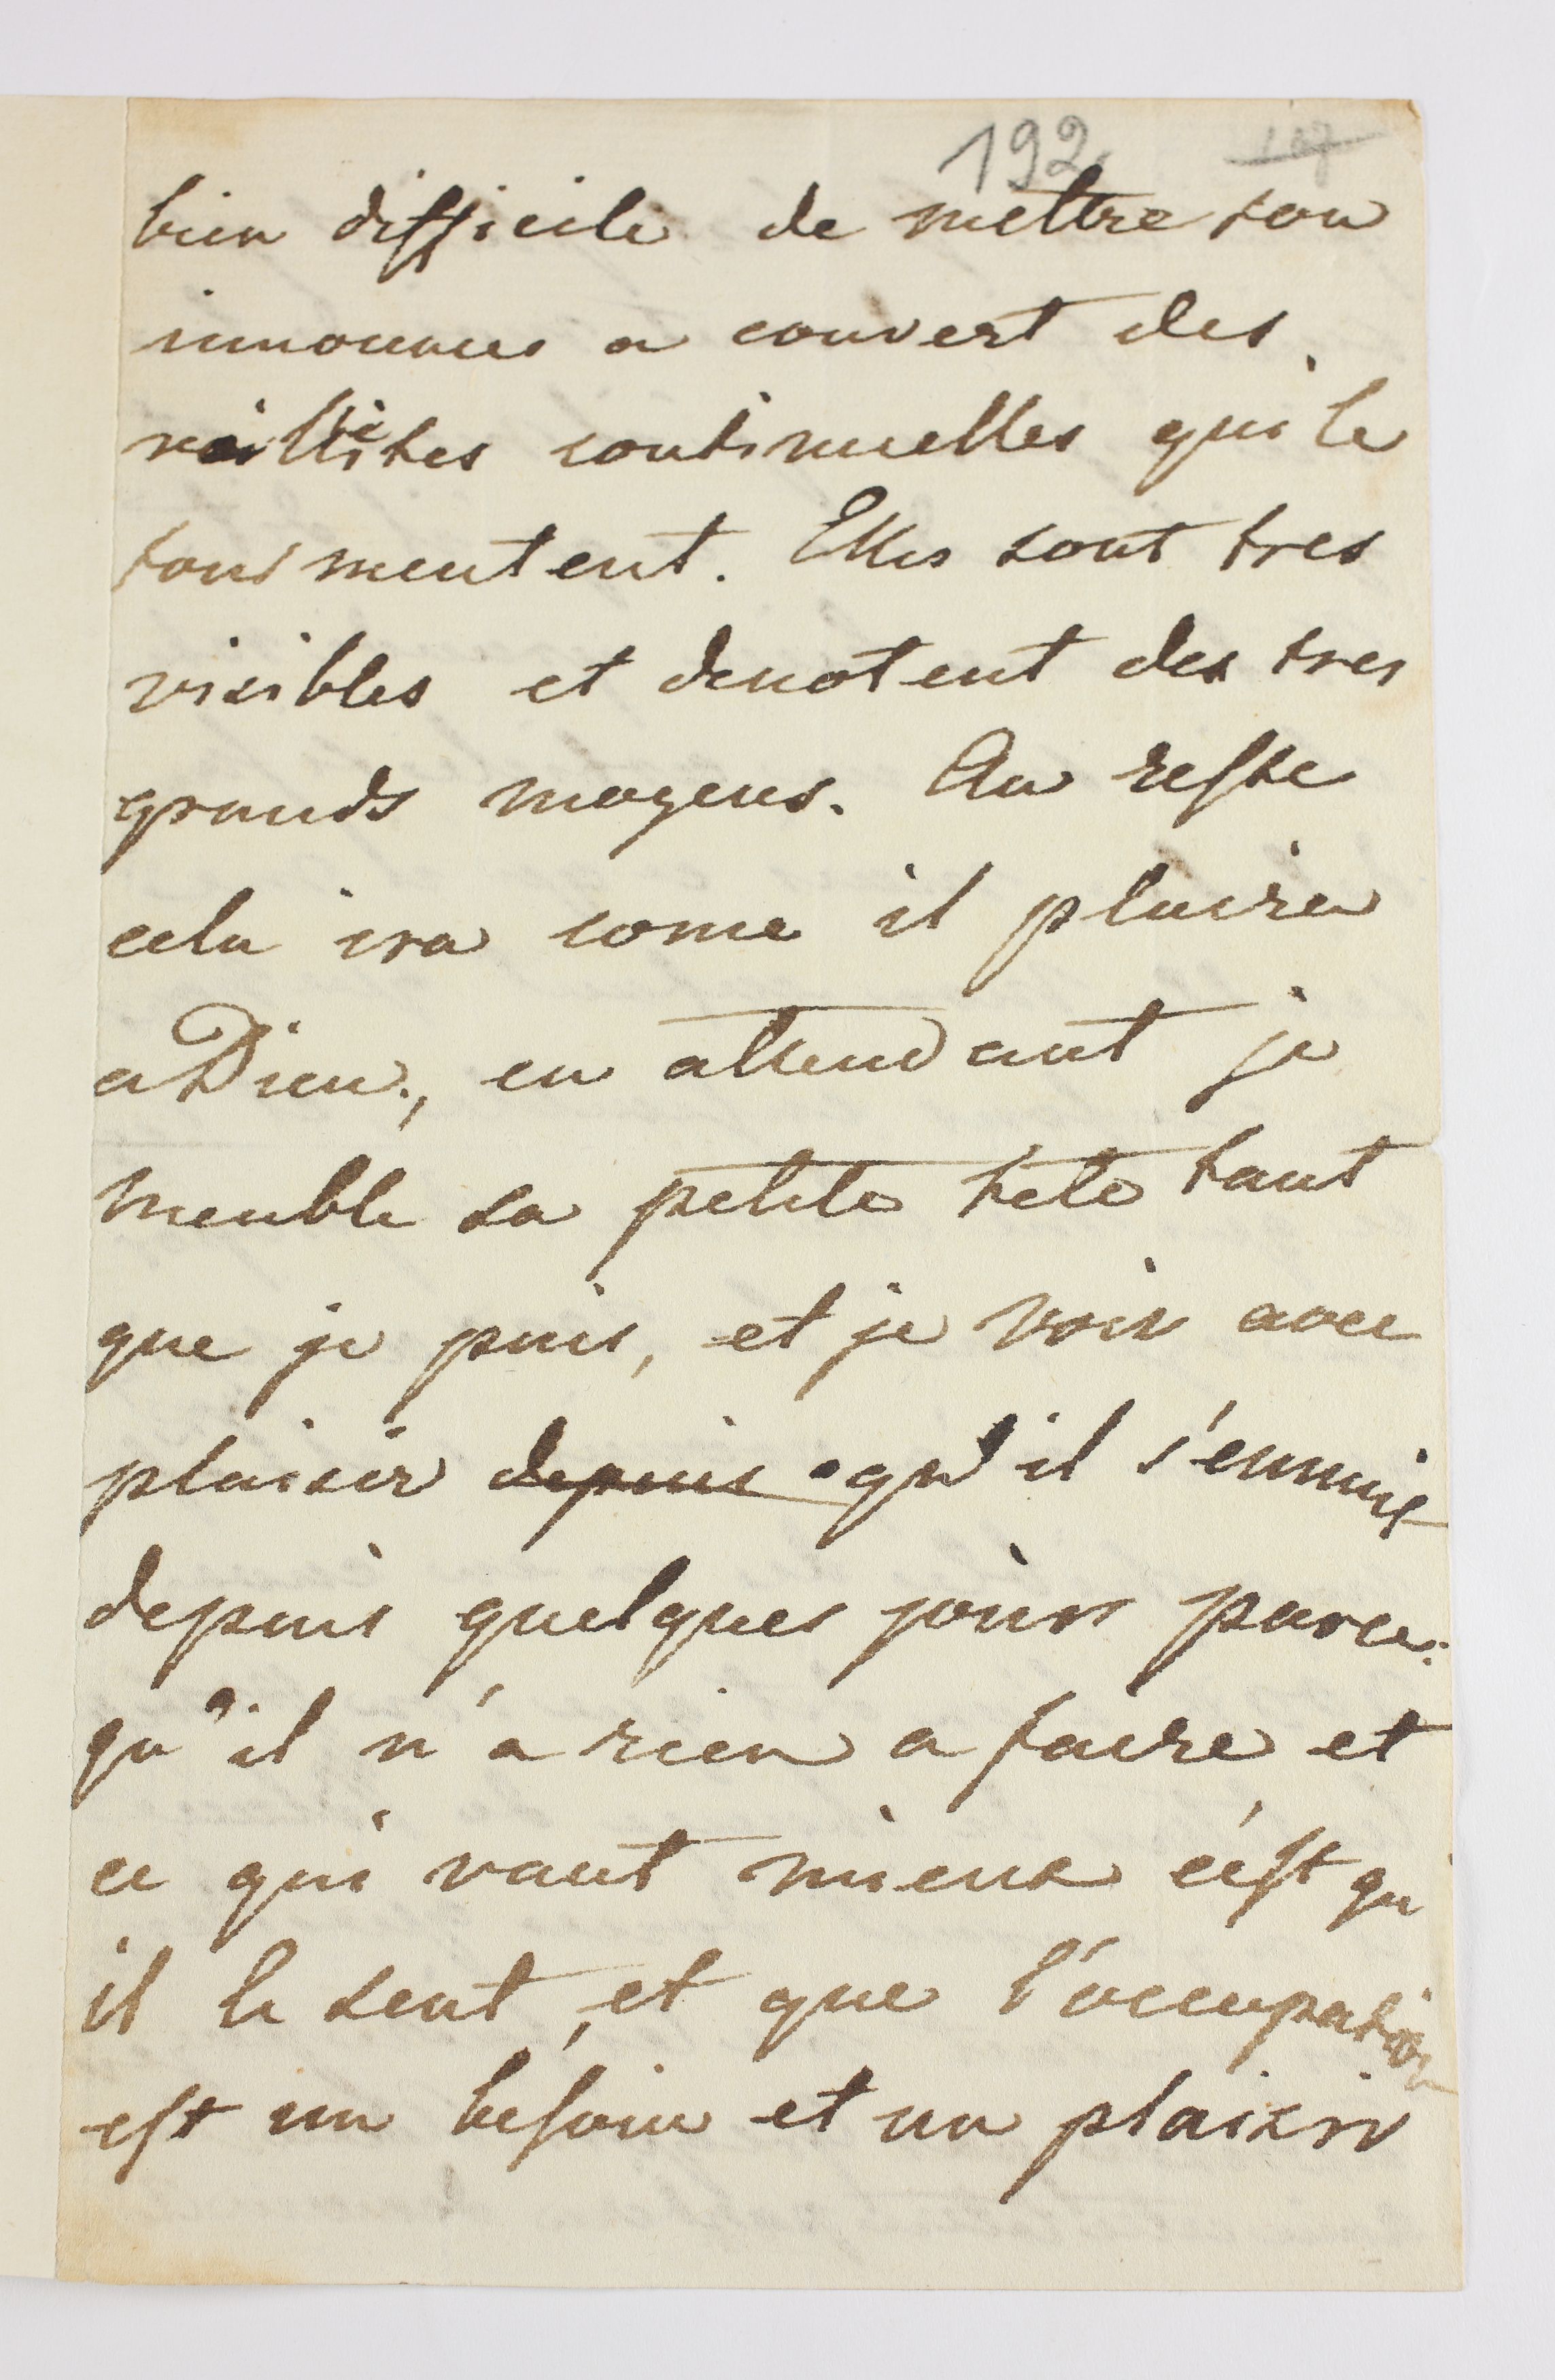 192
bien difficile de mettre son
innocence a couvert des
continuelles qui le
tourmentent. Elles sont tres
visibles et denotent des tres
grands moyens. Au reste
cela ira come il plaira
a Dieu, en attendant je
meuble sa petite tete tant
que je puis, et je vois avec
plaisir depuis qu'il s'ennuie
depuis quelques jours parce
qu'il n'a rien a faire et
ce qui vaut mieux c'est qu
il le sent, et que l'occupation
est un besoin et un plaisir